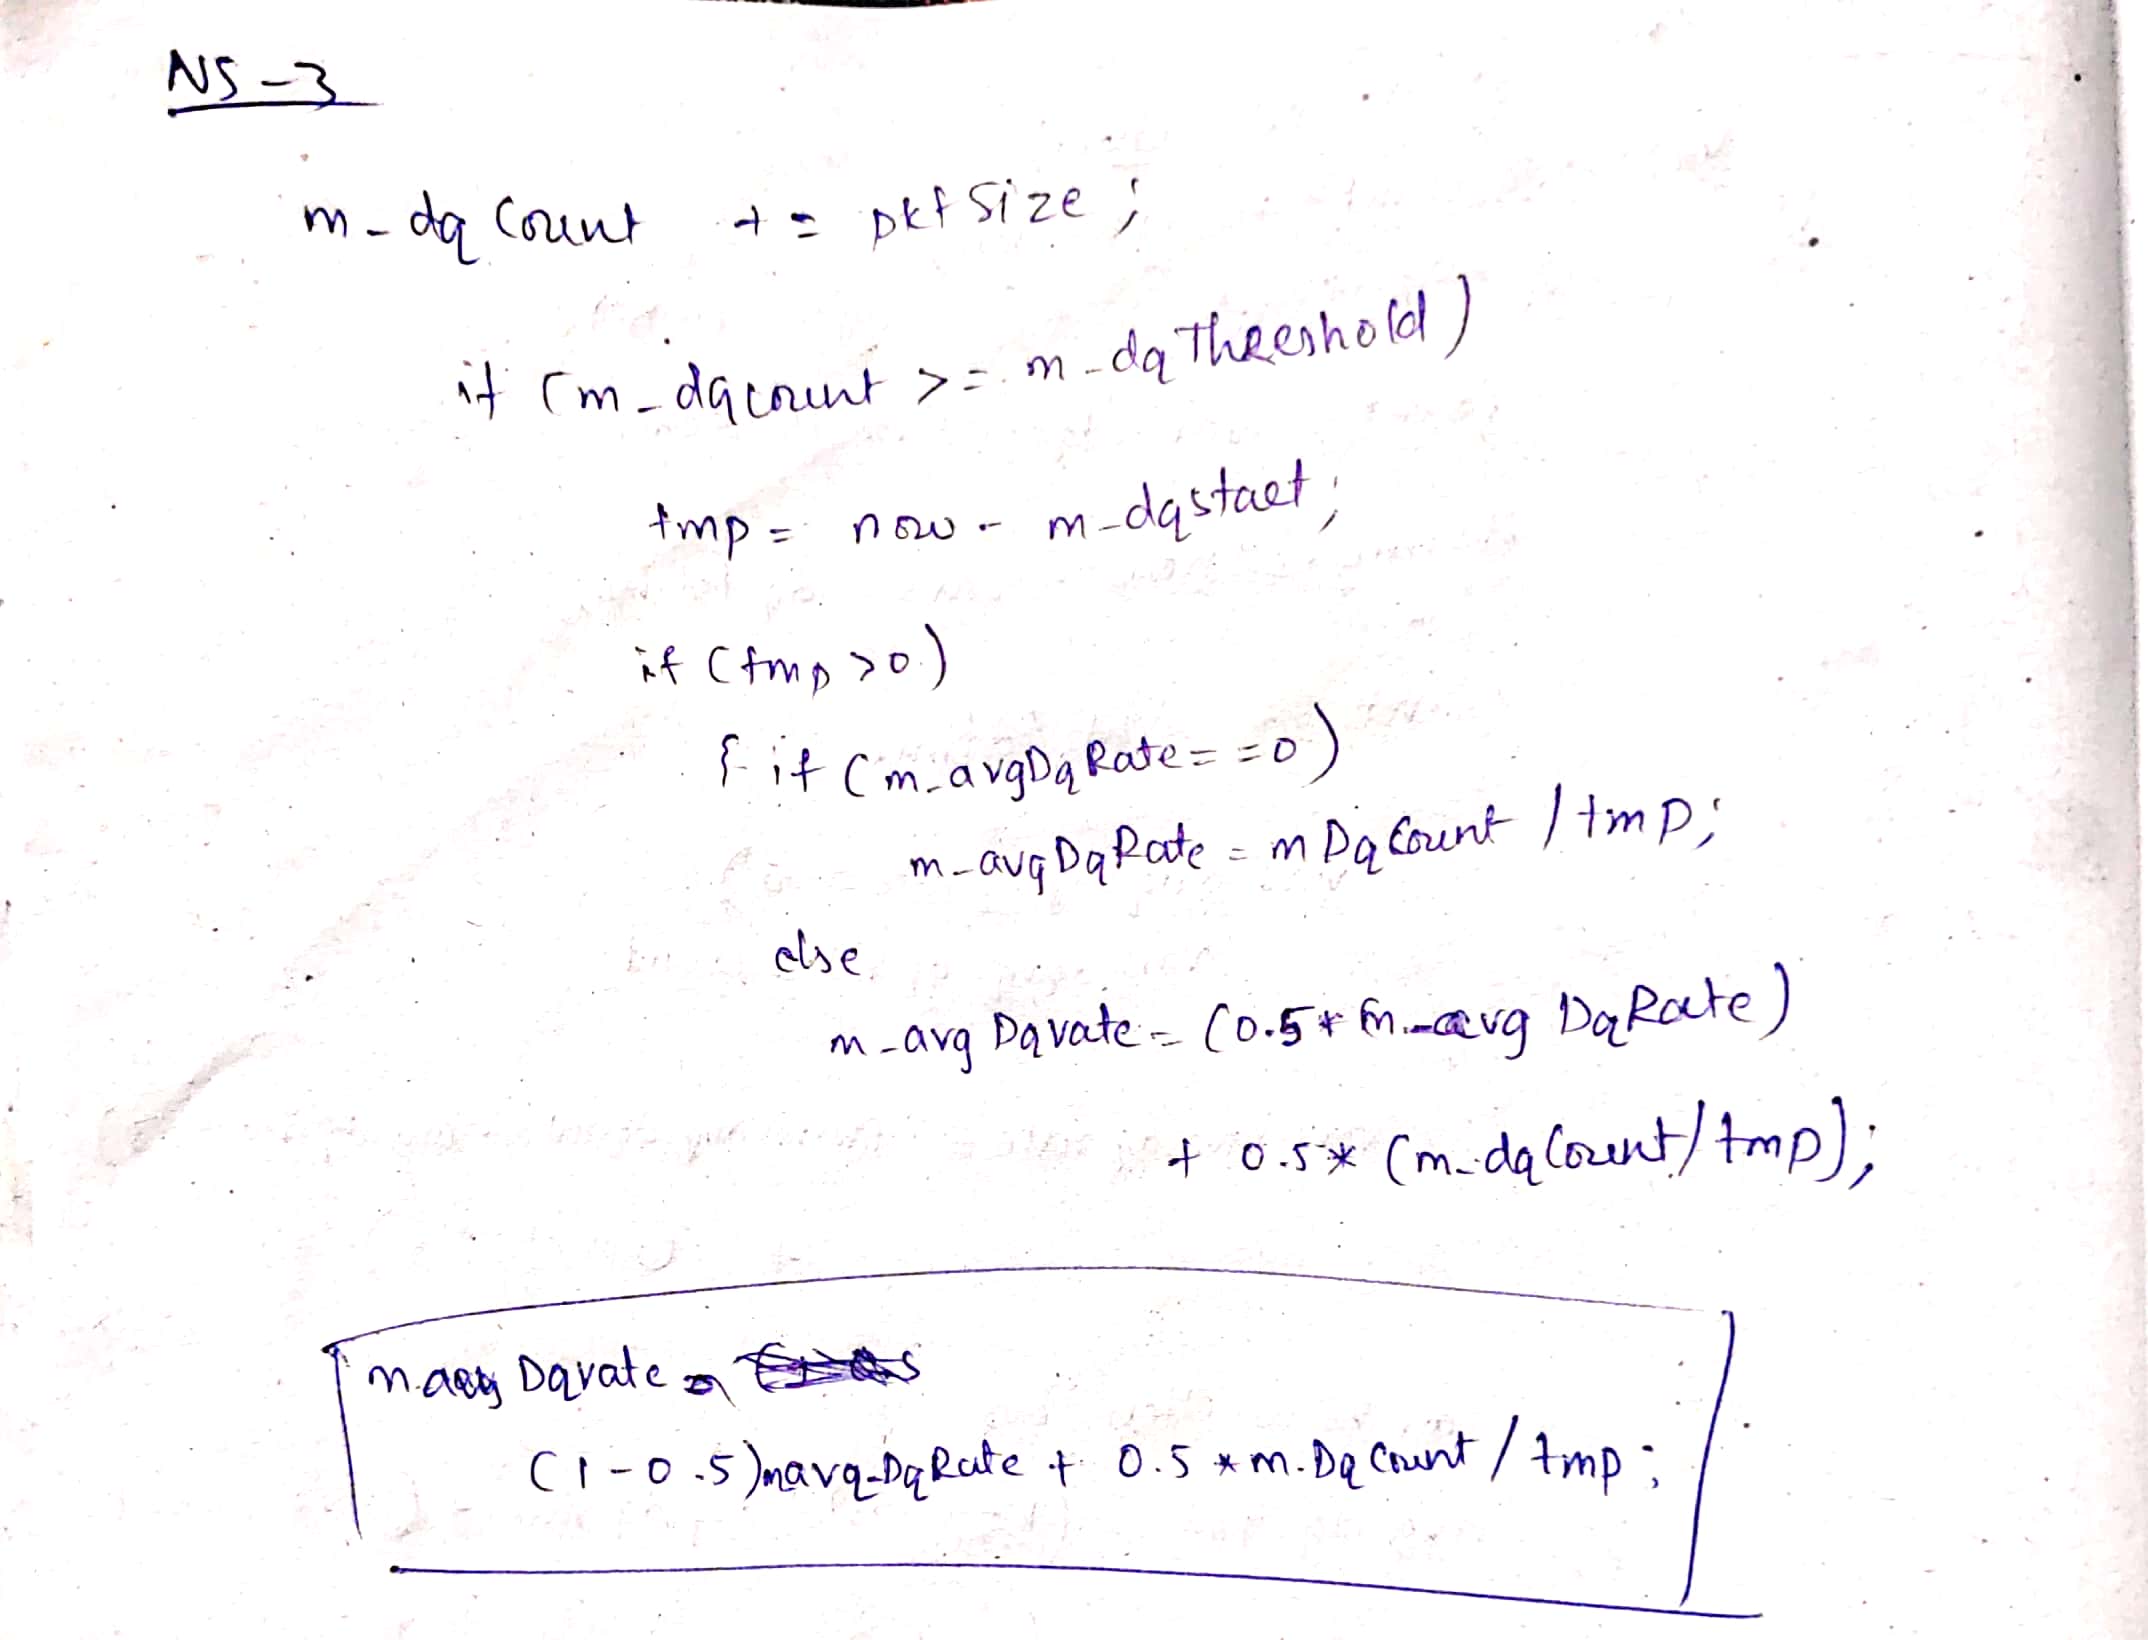 NS-3
m-dq Count += pktSize;
if (m-dqcount >= m-dqThreshold)
tmp = now - m-dqstart;
if (tmp >0)
{ if (m-avgDqRate==0)
m-avgDqRate = mDqCount / tmp;
else
m-avg Dqrate = (0.5* m-avg DqRate)
+ 0.5* (m-dqCount/tmp);
Dqrate
(1-0.5)mavg-DqRate + 0.5 *m.DqCount / tmp;